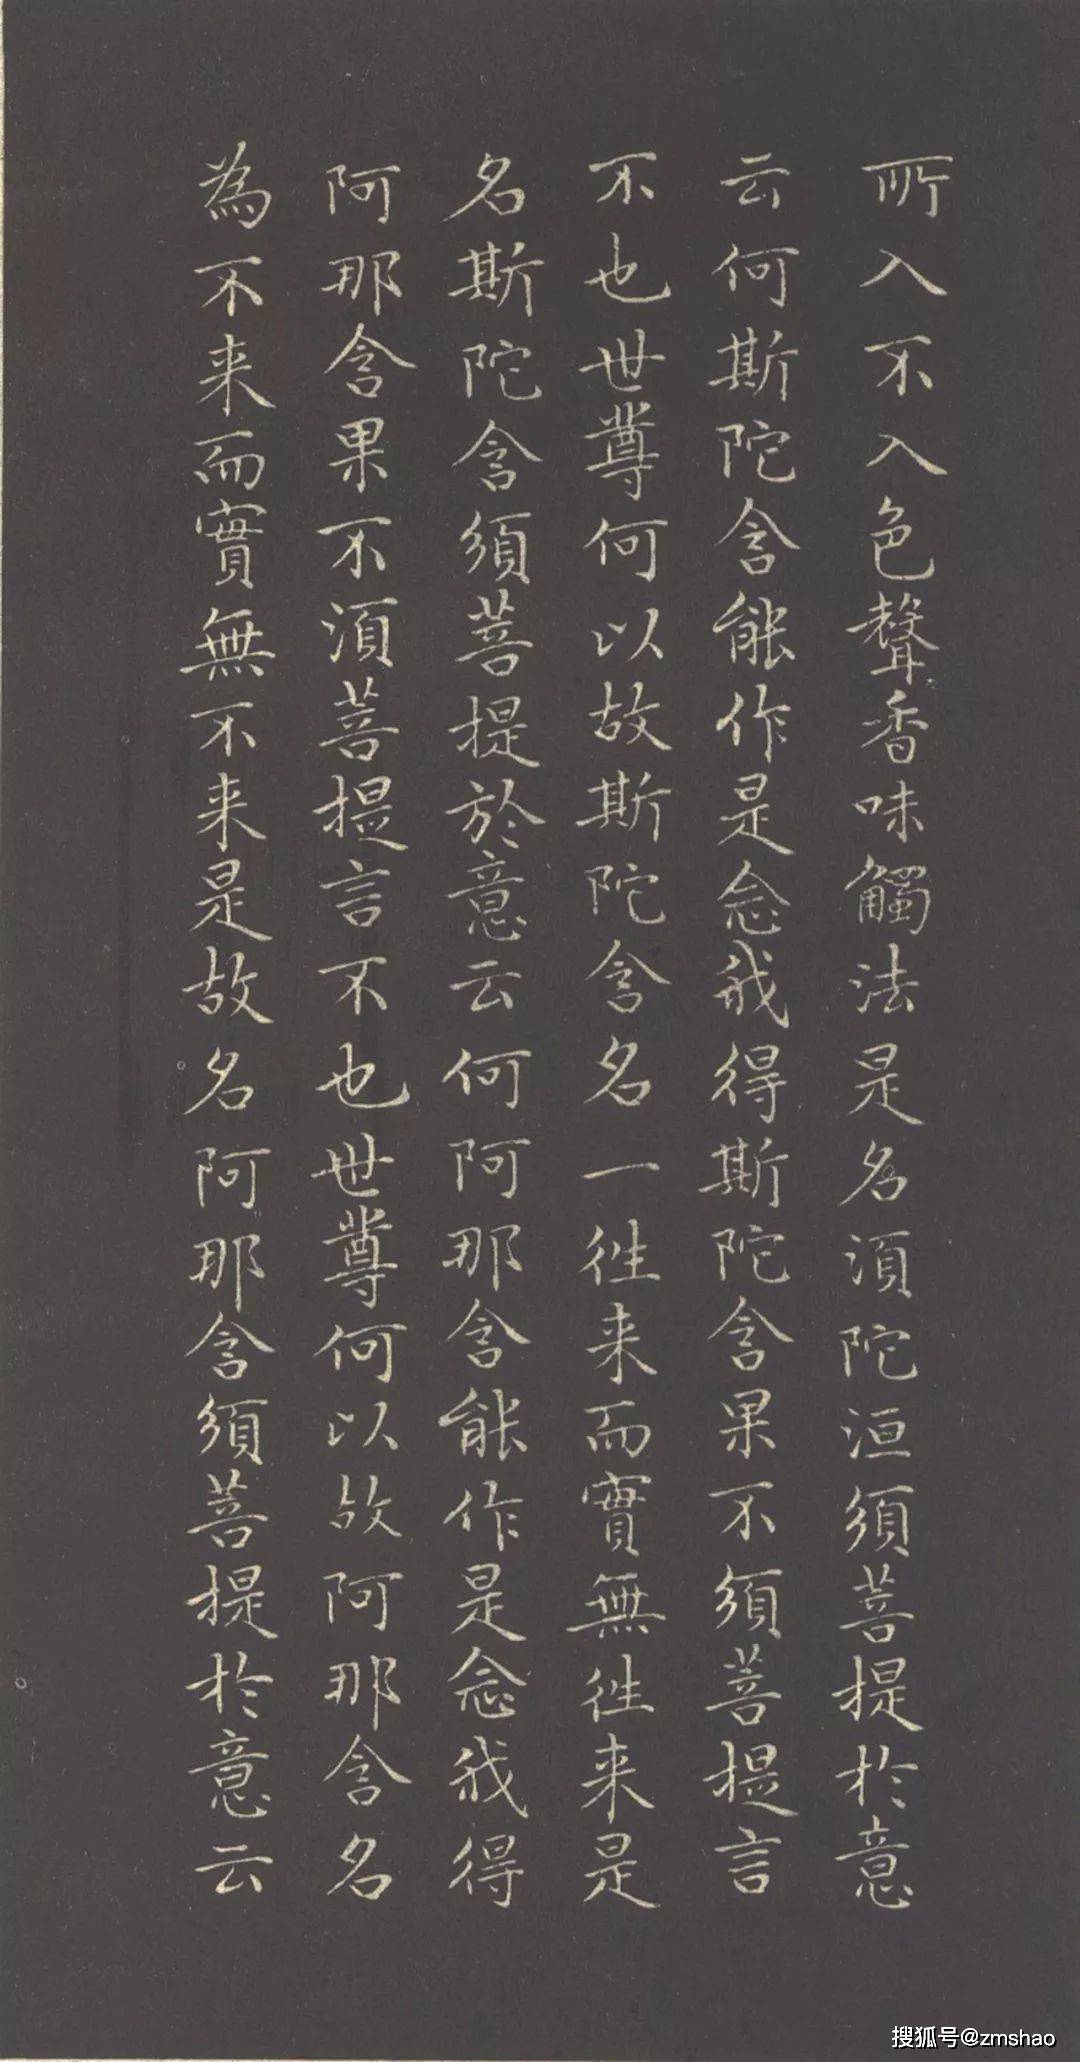 所入不入色聲香味觸法是名須陀洹須菩提於意
云何斯陀含能作是念我得斯陀含果不須菩提言
不也世尊何以故斯陀含名一往来而實無往来是
名斯陀含須菩提於意云何阿那含能作是念我得
阿那含果不須菩提言不也世尊何以故阿那含名
為不来而實無不来是故名阿那含須菩提於意云
搜狐号@zmshao